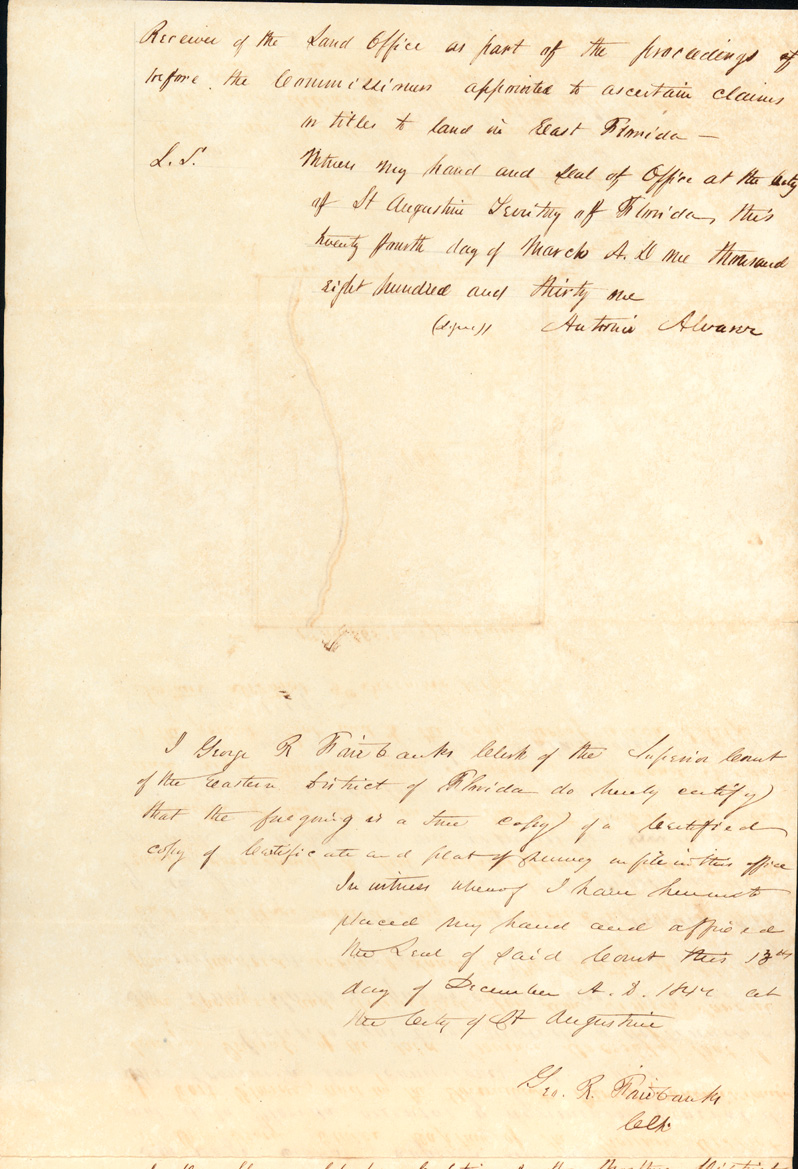 Receiver of the Land Office as part of the proceedings of
before the Commissioners appointed to ascertain claims
or titles to land in East Florida —
L.S. Witness my hand and seal of Office at the City
of St Augustine Territory of Florida, this
twenty fourth day of March A.D one thousand
eight hundred and thirty one
(signed) Antonio Alvarez
I George R Fairbanks Clerk of the Superior Court
of the Eastern District of Florida do hereby certify
that the foregoing is a true copy of a Certified
copy of Certificate and plat of survey on file in this office
In witness whereof I have hereunto
placed my hand and affixed
the Seal of said Court this 13th
day of December A.D. 1844 at
the City of St Augustine
Geo. R. Fairbanks
Clk